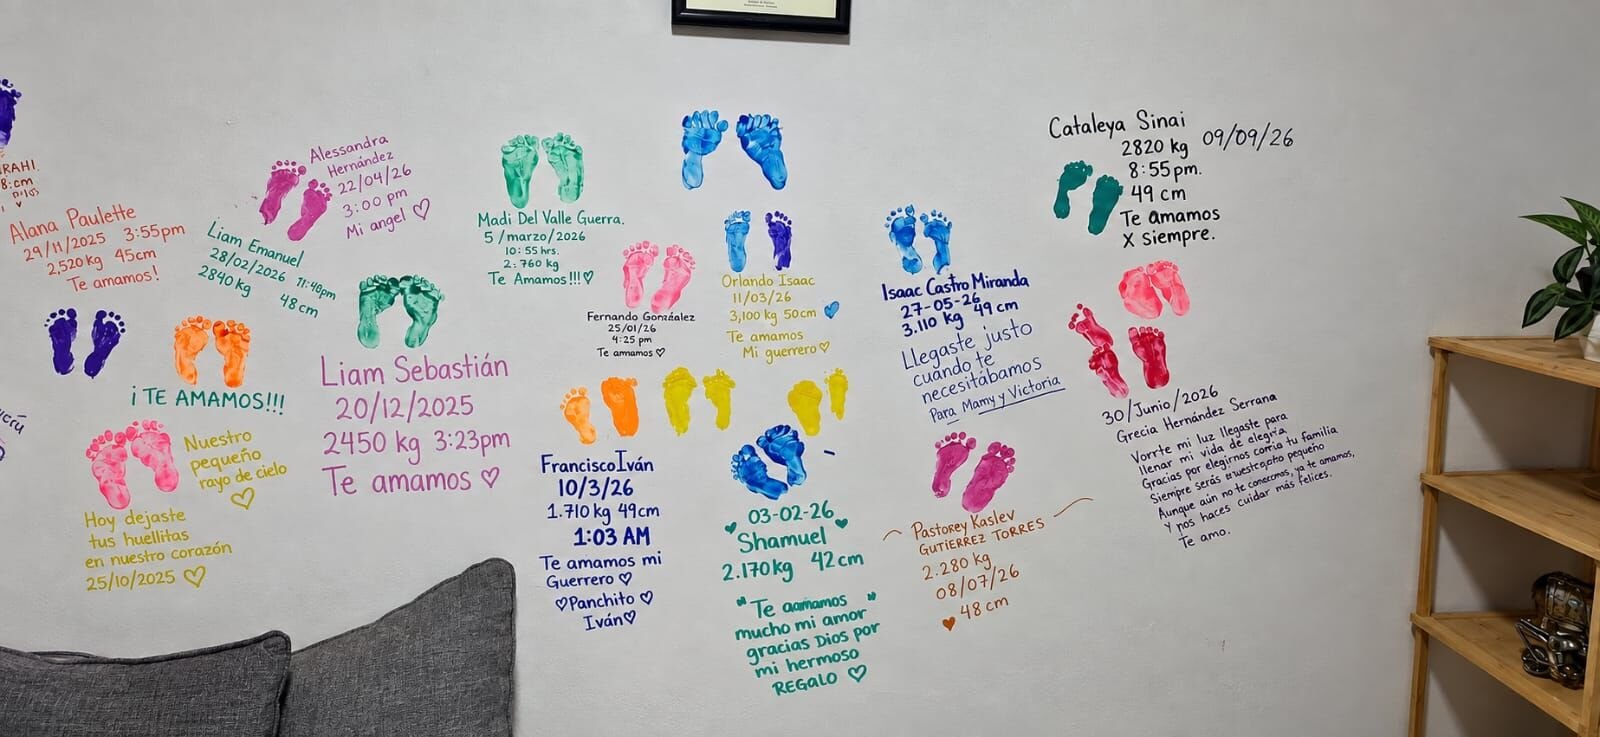 RAHI.
8:cm
Alana Paulette
29/11/2025 3:55pm
2,520kg 45cm
Te amamos!
Alessandra
Hernández
22/04/26
3:00 pm
Mi angel ♡
Liam Emanuel
28/02/2026 11:48pm
2840kg 48cm
¡TE AMAMOS!!!
Nuestro
pequeño
rayo de cielo
♡
Hoy dejaste
tus huellitas
en nuestro corazón
25/10/2025 ♡
Liam Sebastián
20/12/2025
2450 kg 3:23pm
Te amamos ♡
Madi Del Valle Guerra.
5/marzo/2026
10:55 hrs.
2:760 kg
Te Amamos!!!♡
Fernando Gonzéalez
25/01/26
4:25 pm
Te amamos ♡
Orlando Isaac
11/03/26
3,100 kg 50cm
Te amamos
Mi guerrero♡
Francisco Iván
10/3/26
1.710kg 49cm
1:03 AM
Te amamos mi
Guerrero ♡
♡Panchito ♡
Iván♡
03-02-26
Shamuel
2.170kg 42cm
"Te aamamos "
mucho mi amor
gracias Dios por
mi hermoso
REGALO ♡
Isaac Castro Miranda
27-05-26
3.110 kg 49 cm
Llegaste justo
cuando te
necesitábamos
Para Mamy y Victoria
Pastorey Kaslev
GUTIERREZ TORRES
2.280 kg
08/07/26
48 cm
Cataleya Sinai
2820 kg 09/09/26
8:55pm.
49 cm
Te amamos
X siempre.
30/Junio/2026
Grecia Hernández Serrana
Vorrte mi luz llegaste para
llenar mi vida de elegría
Gracias por elegirnos comria tu familia
Siempre serás pequeño
Aunque aún no te conocemos, ya te amamos,
Y nos haces cuidar más felices.
Te amo.